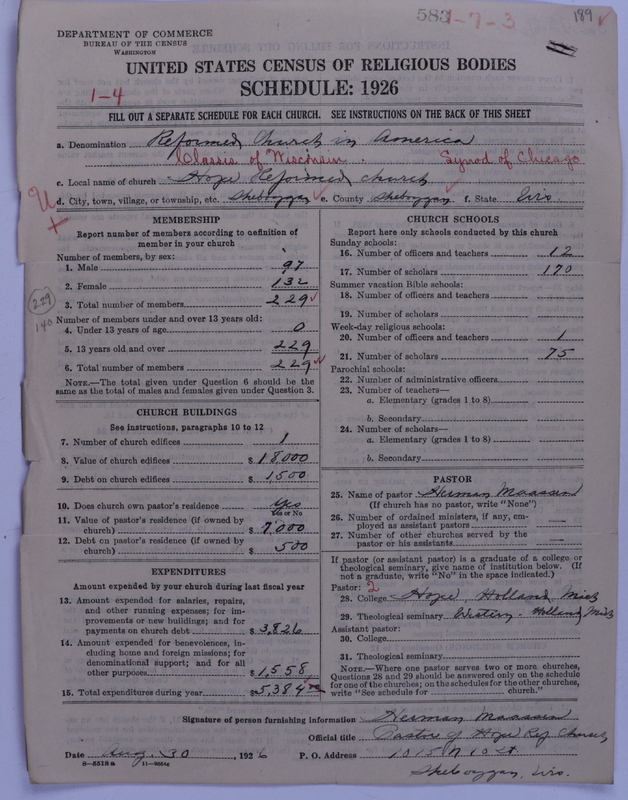 583 1-7-3 189
DEPARTMENT OF COMMERCE
BUREAU OF THE CENSUS
WASHINGTON
UNITED STATES CENSUS OF RELIGIOUS BODIES
SCHEDULE: 1926
1-4
FILL OUT A SEPARATE SCHEDULE FOR EACH CHURCH. SEE INSTRUCTIONS ON THE BACK OF THIS SHEET
a. Denomination Reformed Church in America
Classis of Wisconsin. Synod of Chicago
c. Local name of church Hope Reformed church
d. City, town, village, or township, etc. Sheboygan e. County Sheboygan f. State Wis.
MEMBERSHIP
Report number of members according to definition of
member in your church
Number of members, by sex:
1. Male 97
2. Female 132
3. Total number of members 229
229
140
Number of members under and over 13 years old:
4. Under 13 years of age 0
5. 13 years old and over 229
6. Total number of members 229
NOTE.—The total given under Question 6 should be
same as the total of males and females given under Question 3.
CHURCH BUILDINGS
See instructions, paragraphs 10 to 12
7. Number of church edifices 1
8. Value of church edifices $ 18,000
9. Debt on church edifices $ 1,500
10. Does church own pastor's residence Yes
Yes or No
11. Value of pastor's residence (if owned by
church) $ 7,000
12. Debt on pastor's residence (if owned by
church) $ 500
EXPENDITURES
Amount expended by your church during last fiscal year
13. Amount expended for salaries, repairs,
and other running expenses; for im-
provements or new buildings; and for
payments on church debt $ 3,826
14. Amount expended for benevolences, in-
cluding home and foreign missions; for
denominational support; and for all
other purposes $ 1,558
15. Total expenditures during year $ 5,384
CHURCH SCHOOLS
Report here only schools conducted by this church
Sunday schools:
16. Number of officers and teachers 12
17. Number of scholars 170
Summer vacation Bible schools:
18. Number of officers and teachers
19. Number of scholars
Week-day religious schools:
20. Number of officers and teachers 1
21. Number of scholars 75
Parochial schools:
22. Number of administrative officers
23. Number of teachers—
a. Elementary (grades 1 to 8)
b. Secondary
24. Number of scholars—
a. Elementary (grades 1 to 8)
b. Secondary
PASTOR
25. Name of pastor Herman Maassen
(If church has no pastor, write "None")
26. Number of ordained ministers, if any, em-
ployed as assistant pastors —
27. Number of other churches served by the
pastor or his assistants —
If pastor (or assistant pastor) is a graduate of a college or
theological seminary, give name of institution below. (If
not a graduate, write "No" in the space indicated.)
Pastor: 2
28. College Hope, Holland, Mich
29. Theological seminary Western - Holland Mich
Assistant pastor:
30. College
31. Theological seminary
NOTE.—Where one pastor serves two or more churches,
Questions 28 and 29 should be answered only on the schedule
for one of the churches; on the schedules for the other churches,
write "See schedule for church."
Signature of person furnishing information Herman Maassen
Official title Pastor of Hope Ref Church
Date Aug. 30, 1926 P. O. Address 1015 N 10 St
8—5518a
Sheboygan, Wis.